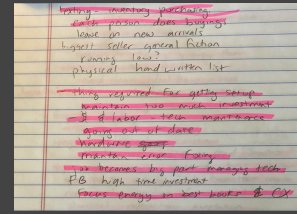 inventory purchasing
each person does buyings
leave on new arrivals
highest seller general fiction
running low?
physical hand written list
thing required for getting setup
maintain too much investment
$ labor - tech maintence
going out of date
hardware
maintan error fixing
job becomes big part managing tech
FB high time investment
focus energy on best books